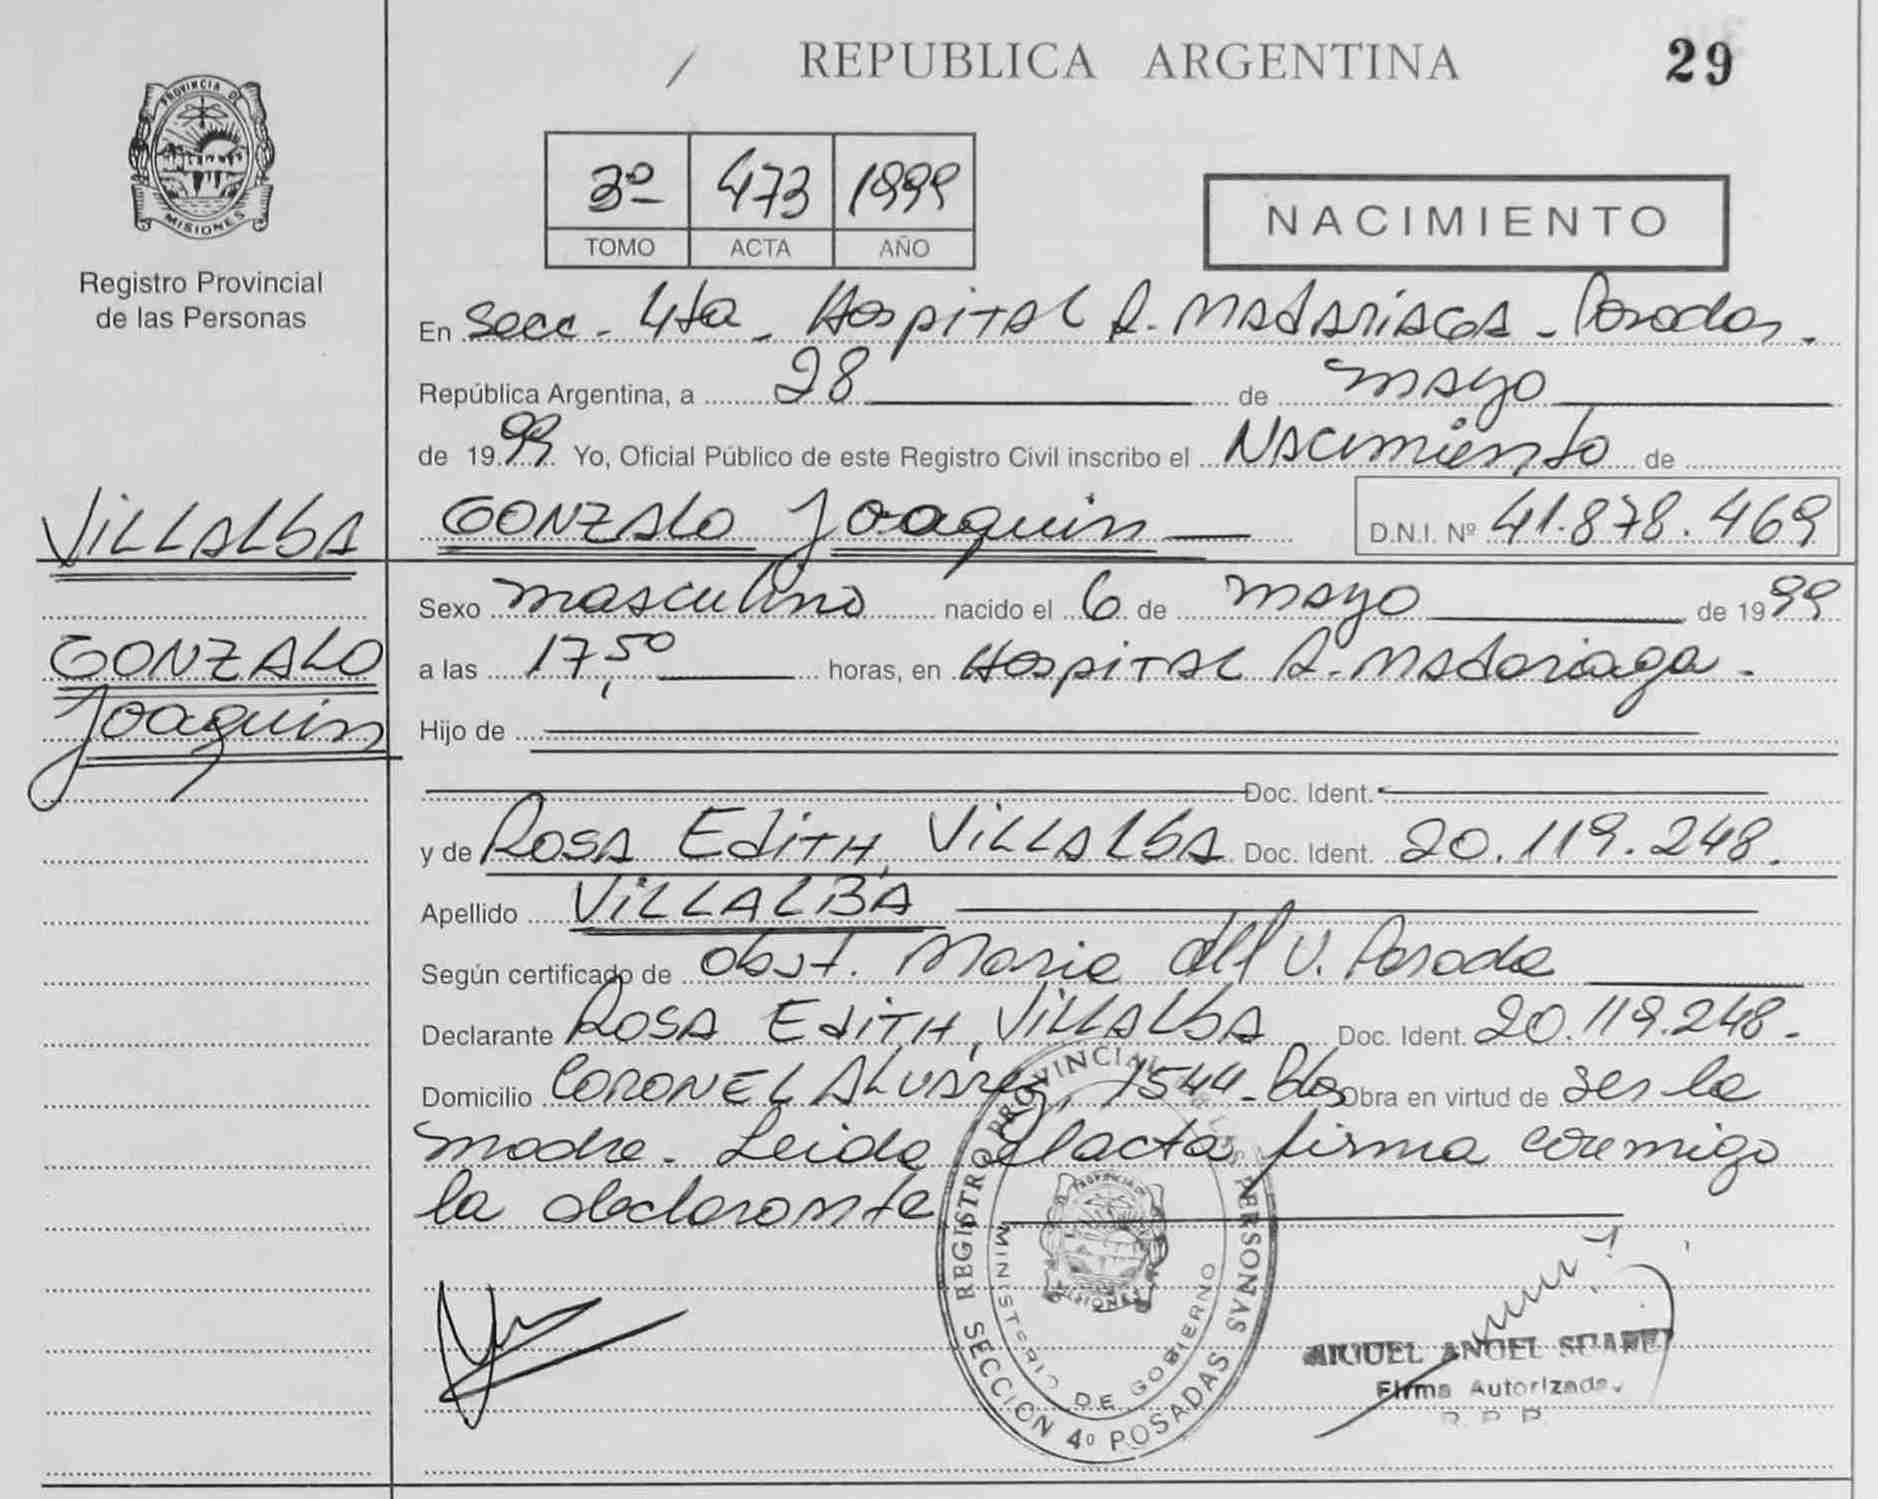 REPUBLICA ARGENTINA
29
PROVINCIA DE
MISIONES
Registro Provincial
de las Personas
3º 473 1999
TOMO ACTA AÑO
NACIMIENTO
En Secc. 4ta. Hospital R. Madariaga - Posadas.
República Argentina, a 28 de mayo
de 1999 Yo, Oficial Público de este Registro Civil inscribo el Nacimiento de
VILLALBA
GONZALO Joaquin D.N.I. Nº 41.878.469
Sexo masculino nacido el 6 de mayo de 1999
GONZALO
Joaquin
a las 17,50 horas, en Hospital R. Madariaga.
Hijo de
Doc. Ident.
y de Rosa Edith Villalba Doc. Ident. 20.119.248.
Apellido VILLALBA
Según certificado de Obst. Maria del V. Parada
Declarante Rosa Edith Villalba Doc. Ident. 20.119.248.
Domicilio Coronel Alvarez 1544 - Pdas Obra en virtud de ser la
madre. Leida el acta firma conmigo
la declarante
REGISTRO PROVINCIAL PERSONAS
MINISTERIO DE GOBIERNO
MISIONES
SECCION 4º POSADAS
MIGUEL ANGEL SUAREZ
Firma Autorizada
R. P. P.